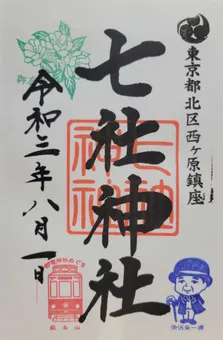 東京都北区西ヶ原鎮座
七社神社
七社神社
令和三年八月一日
飛鳥山
渋沢栄一翁